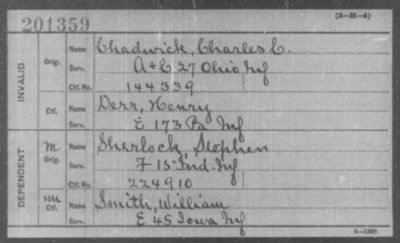 201359
(3-H-4)
INVALID
Orig.
Name Chadwick, Charles C.
Serv. A+C 27 Ohio Inf
Ctf. No. 144339
Ctf.
Name Derr, Henry
Serv. E 173 Pa Inf
DEPENDENT
M
Orig.
Name Sherlock, Stephen
Serv. F 15 Ind. Inf
Ctf. No. 224910
Ctf.
Name Smith, William
Serv. E 45 Iowa Inf